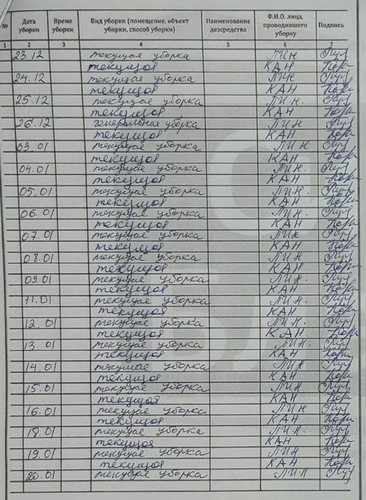 № Дата уборки Время уборки Вид уборки (помещение, объект уборки, способ уборки) Наименование дезсредства Ф.И.О. лица, проводившего уборку Подпись
1 2 3 4 5 6
23.12 текущая уборка ЛИН
текущая КАН
24.12 текущая уборка ЛИН
текущая КАН
25.12 текущая уборка ЛИН
текущая КАН
26.12 генеральная уборка ЛИН
текущая КАН
03.01 текущая уборка ЛИН
текущая КАН
04.01 текущая уборка ЛИН
текущая КАН
05.01 текущая уборка ЛИН
текущая КАН
06.01 текущая уборка ЛИН
текущая КАН
07.01 текущая уборка ЛИН
текущая КАН
08.01 текущая уборка ЛИН
текущая КАН
09.01 текущая уборка ЛИН
текущая КАН
11.01 текущая уборка ЛИН
текущая КАН
12.01 текущая уборка ЛИН
текущая КАН
13.01 текущая уборка ЛИН
текущая КАН
14.01 текущая уборка ЛИН
текущая КАН
15.01 текущая уборка ЛИН
текущая КАН
16.01 текущая уборка ЛИН
текущая КАН
18.01 текущая уборка ЛИН
текущая КАН
19.01 текущая уборка ЛИН
текущая КАН
20.01 текущая уборка ЛИН